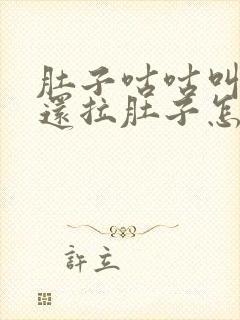 肚子咕咕叫
還拉肚子怎
許立